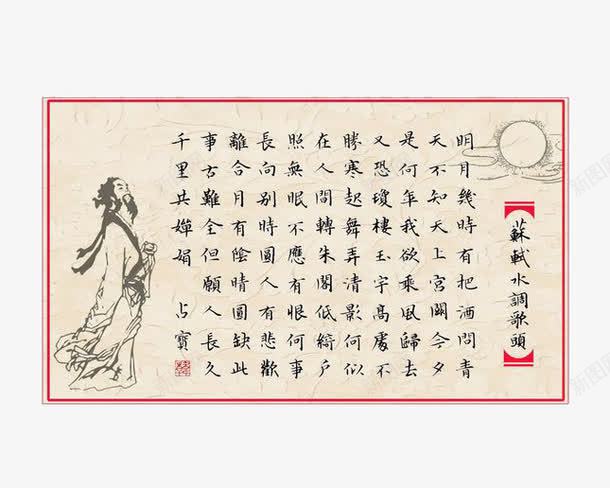 蘇軾水調歌頭
明月幾時有把酒問青
天不知天上宮闕今夕
是何年我欲乘風歸去
又恐瓊樓玉宇高處不
勝寒起舞弄清影何似
在人間轉朱閣低綺戶
照無眠不應有恨何事
長向别時圓人有悲歡
離合月有陰晴圓缺此
事古難全但願人長久
千里共嬋娟 占寶